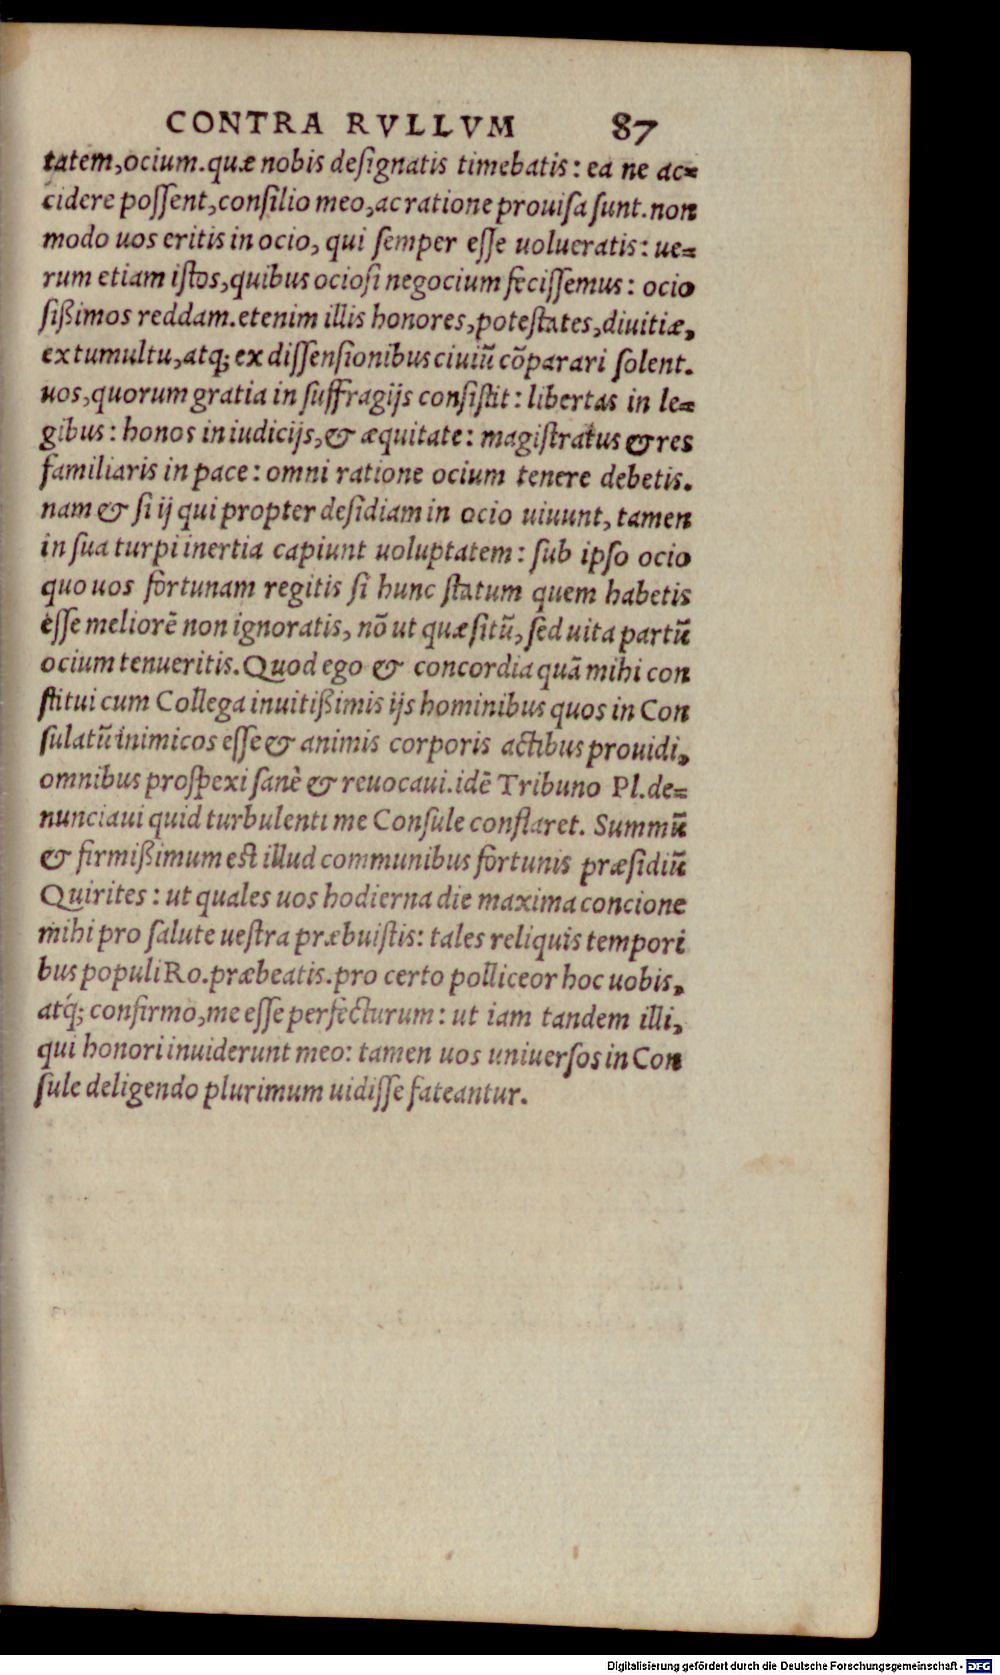 CONTRA RVLLVM 87
tatem, ocium. quæ nobis deſignatis timebatis: ea ne ac=
cidere poſſent, conſilio meo, ac ratione prouiſa ſunt. non
modo uos eritis in ocio, qui ſemper eſſe uolueratis: ue=
rum etiam iſtos, quibus ocioſi negocium feciſſemus: ocio
ſißimos reddam. etenim illis honores, poteſtates, diuitiæ,
ex tumultu, atq; ex diſſenſionibus ciuiū cōparari ſolent.
uos, quorum gratia in ſuffragijs conſiſtit: libertas in le=
gibus: honos in iudicijs, & æquitate: magiſtratus & res
familiaris in pace: omni ratione ocium tenere debetis.
nam & ſi ij qui propter deſidiam in ocio uiuunt, tamen
in ſua turpi inertia capiunt uoluptatem: ſub ipſo ocio
quo uos fortunam regitis ſi hunc ſtatum quem habetis
eſſe meliorē non ignoratis, nō ut quæſitū, ſed uita partū
ocium tenueritis. Quod ego & concordia quā mihi con
ſtitui cum Collega inuitißimis ijs hominibus quos in Con
ſulatū inimicos eſſe & animis corporis actibus prouidi,
omnibus proſpexi ſanè & reuocaui. idē Tribuno Pl. de=
nunciaui quid turbulenti me Conſule conflaret. Summū
& firmißimum est illud communibus fortunis præſidiū
Quirites: ut quales uos hodierna die maxima concione
mihi pro ſalute ueſtra præbuiſtis: tales reliquis tempori
bus populi Ro. præbeatis. pro certo polliceor hoc uobis,
atq́; confirmo, me eſſe perfecturum: ut iam tandem illi,
qui honori inuiderunt meo: tamen uos uniuerſos in Con
ſule deligendo plurimum uidiſſe fateantur.
Digitalisierung gefördert durch die Deutsche Forschungsgemeinschaft - DFG